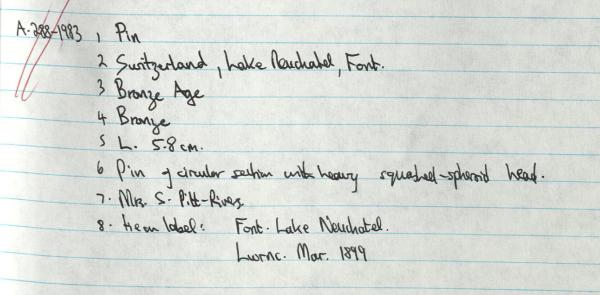 A.288-1983 1 Pin
2 Switzerland, Lake Neuchatel, Font.
3 Bronze Age
4 Bronze
5 L. 5.8cm.
6 Pin of circular section with heavy squashed-spheroid head.
7. Mrs. S. Pitt-Rivers
8. Item label: Font. Lake Neuchatel.
Mar. 1899